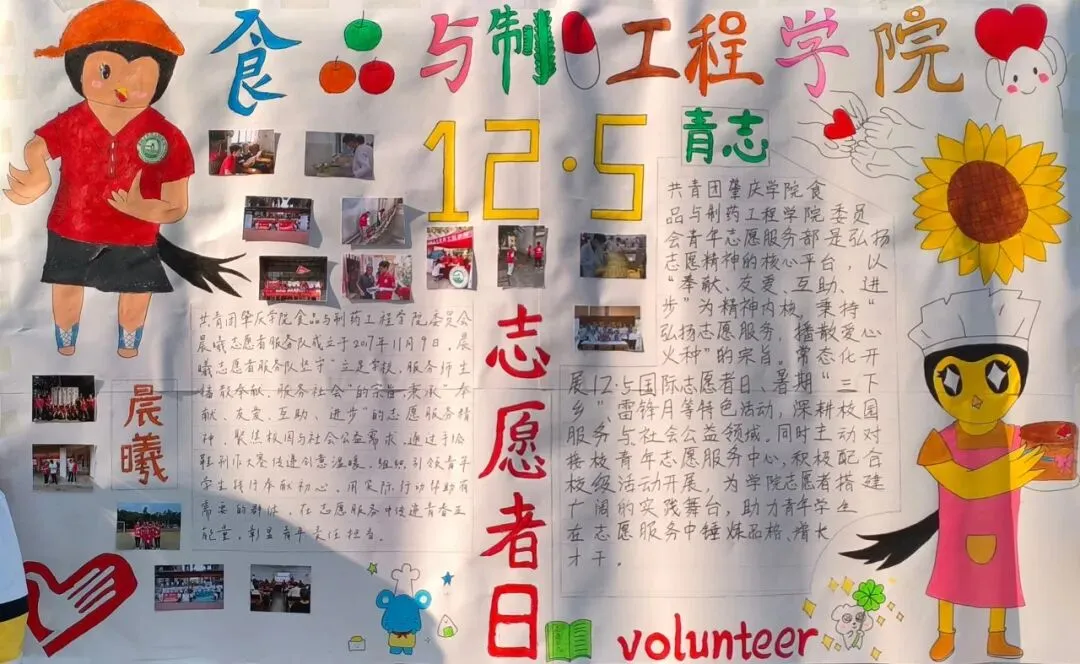 食 与制 工程学院
12·5
青志
志愿者日
共青团肇庆学院食
品与制药工程学院委员
会青年志愿服务部是弘扬
志愿精神的核心平台，以
“奉献、友爱、互助、进
步”为精神内核，秉持“
弘扬志愿服务，播散爱心
火种”的宗旨。常态化开
展12·5国际志愿者日、暑期“三下
乡”，雷锋月等特色活动，深耕校园
服务与社会公益领域。同时主动对
接校青年志愿服务中心，积极配合
校级活动开展，为学院志愿者搭建
广阔的实践舞台，助力青年学生
在志愿服务中锤炼品格、增长
才干。
晨曦
共青团肇庆学院食品与制药工程学院委员会
晨曦志愿者服务队成立于2017年11月9日。晨
曦志愿者服务队坚守“立足学校，服务师生
播散奉献，服务社会”的宗旨，秉承“奉
献、友爱、互助、进步”的志愿服务精
神，聚焦校园与社会公益需求，通过手绘
鞋制作大赛传递创意温暖，组织引领青年
学生践行奉献初心，用实际行动帮助有
需要的群体，在志愿服务中传递青春正
能量，彰显青年责任担当。
volunteer